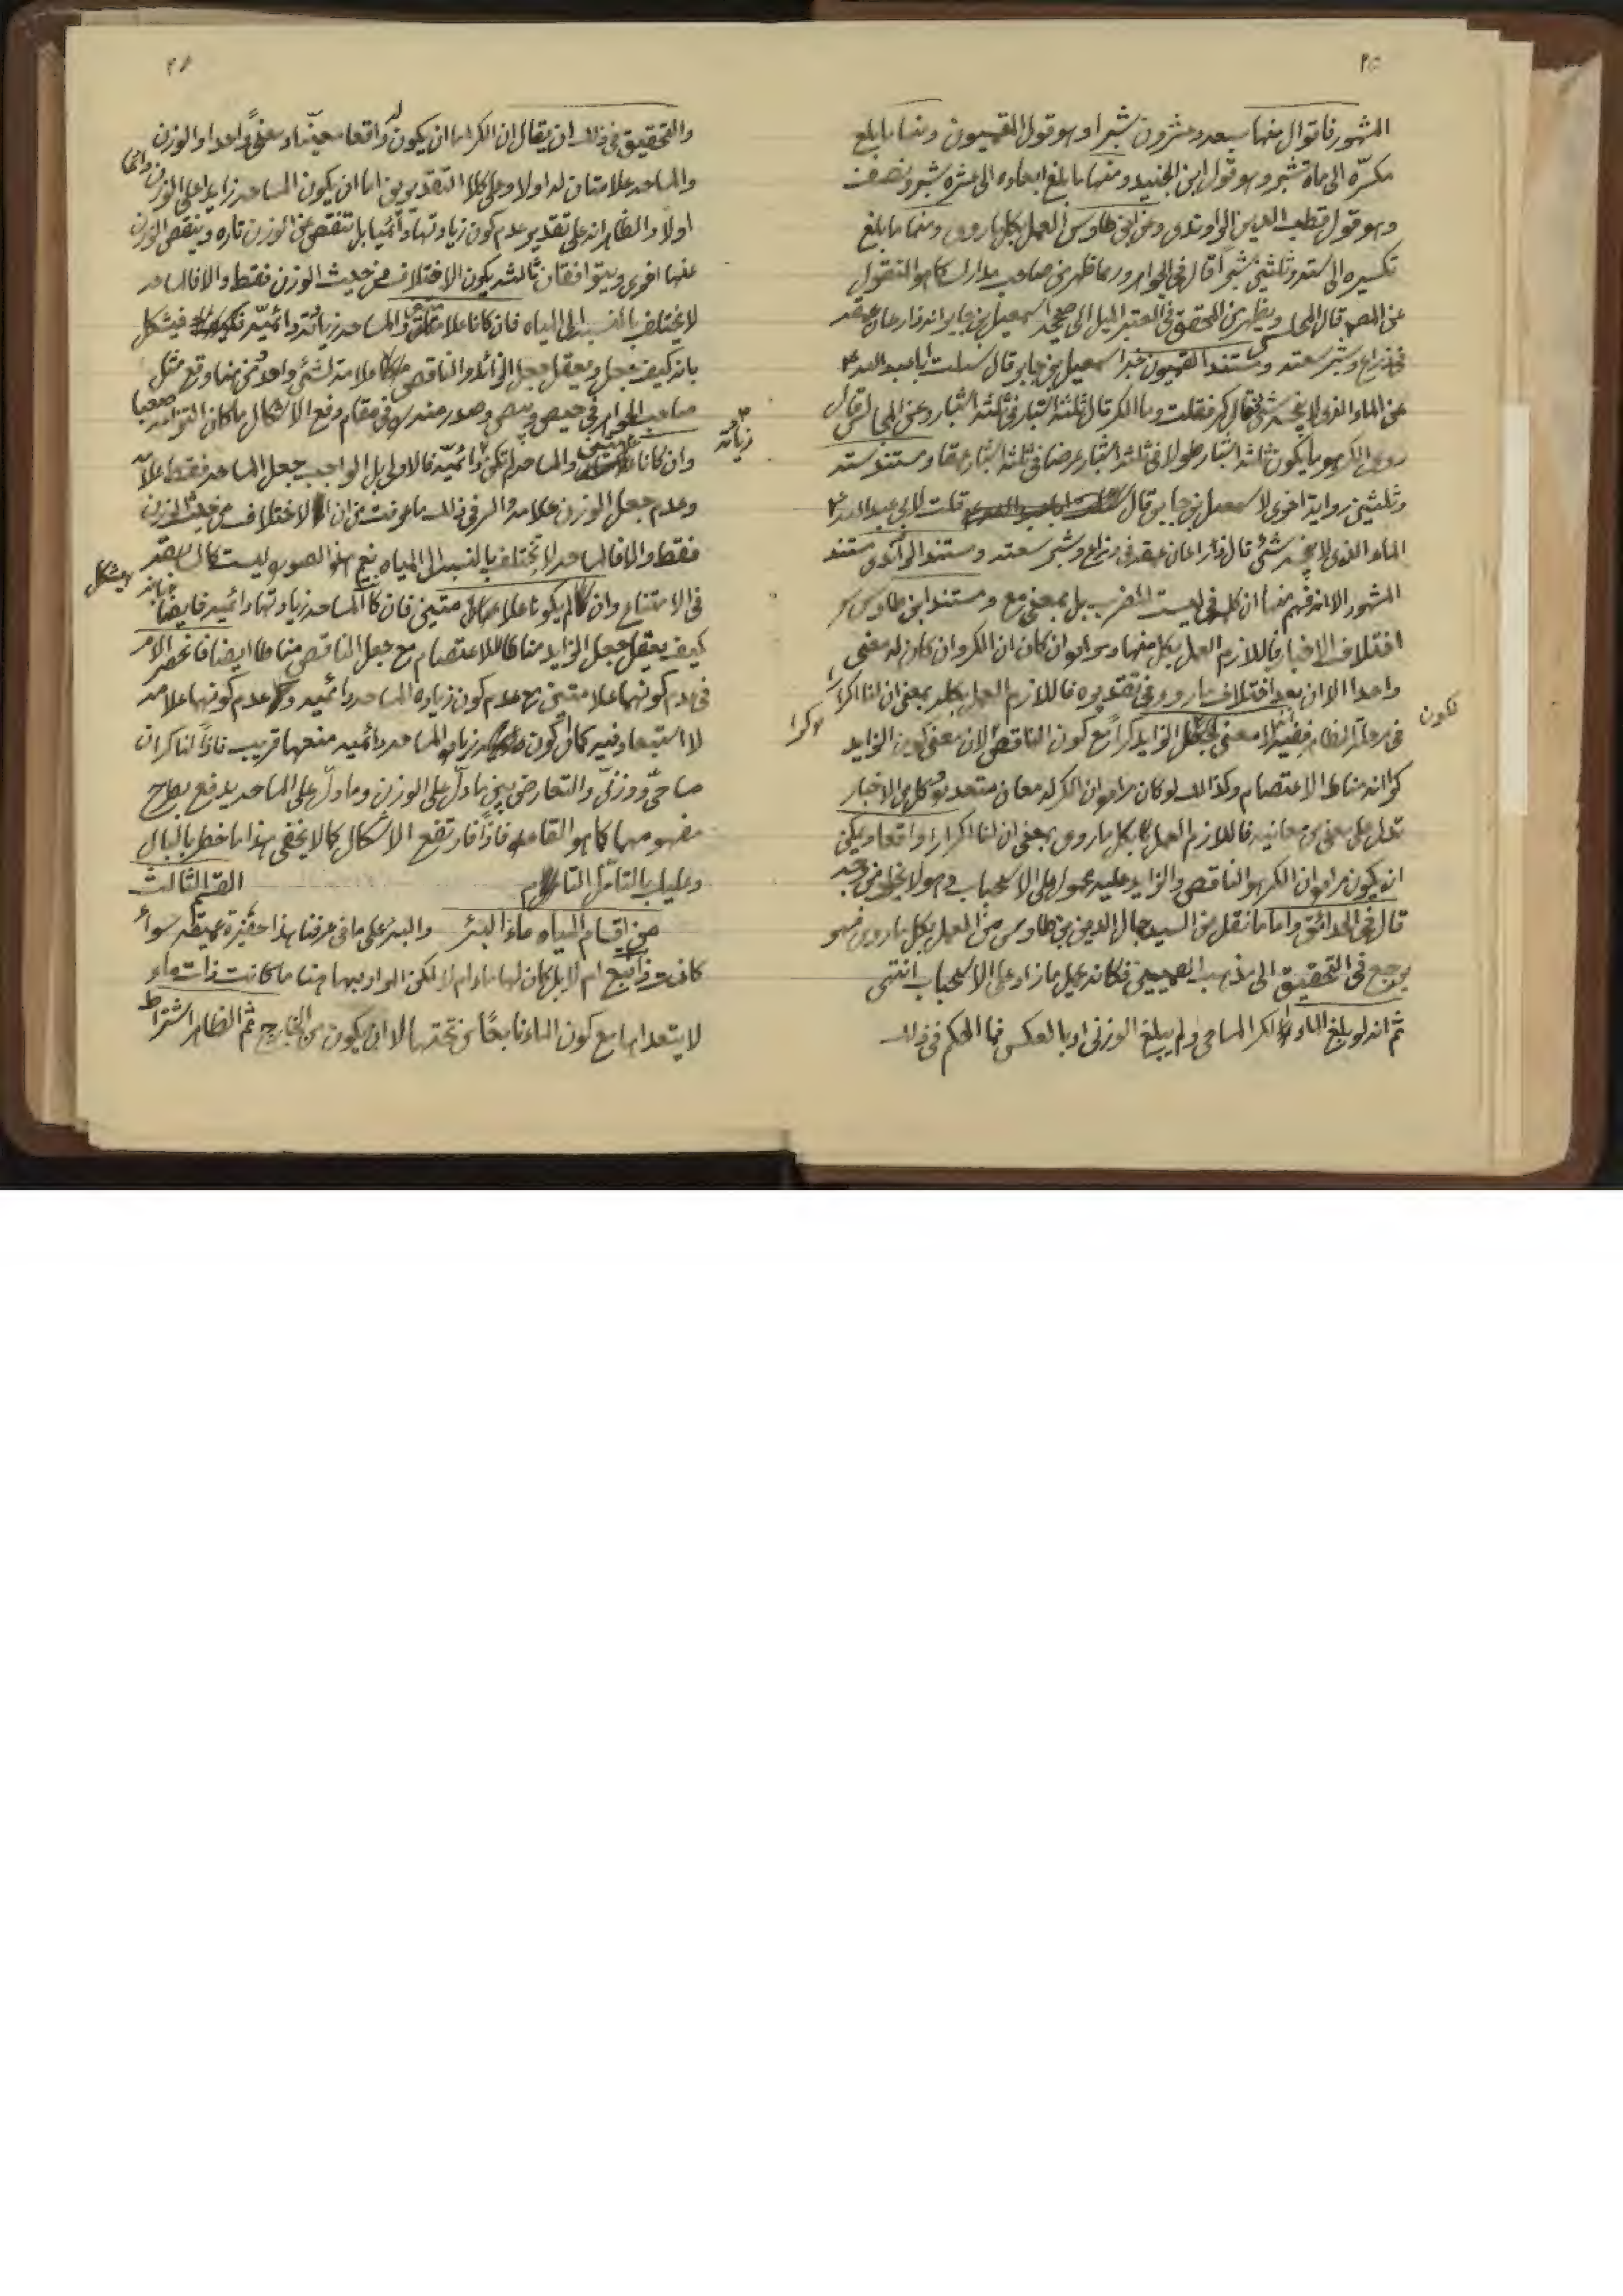 ٢٥
المشهور فاقوال منها سبعة وعشرون شبرا وهو قول القميون ومنها ما بلغ
مكسره الى مأة شبر وهو قول ابن الجنيد ومنها ما بلغ ابعاده الى عشرة شبر ونصف
وهو قول قطب الدين الراوندى وعن ابن طاوس العمل بكل ما روى ومنها ما بلغ
تكسيره الى ستة وثلثين شبرا قال فى الجواهر وربما ظهر من صاحب مدارك كما هو المنقول
عن المص قال المجلسى ويظهر من المحقق فى المعتبر الميل الى صحيحة اسمعيل بن جابر انه ذراعان عمقه
فى ذراع وشبر سعته ومستند القميون خبر اسمعيل بن جابر قال سئلت ابا عبد الله ع
عن الماء الذى لا ينجسه شئ فقال كر فقلت وما الكر قال ثلثة اشبار فى ثلثة اشبار وعن المجالس قال
روى الكر هو ما يكون ثلثة اشبار طولا فى ثلثة اشبار عرضا فى ثلثة اشبار عمقا ومستند ستة
وثلثين رواية اخرى لاسمعيل بن جابر قال قلت لابى عبد الله ع
الماء الذى لا ينجسه شئ قال ذراعان عمقه فى ذراع وشبر سعته ومستند الراوندى مستند
المشهور الا انه فهم منها ان كلمة فى ليست للضرب بل بمعنى مع ومستند ابن طاوس
اختلاف الاخبار فاللازم العمل بكل منها ومراده ان كان ان الكر وان كان له معنى
واحدا الا ان بعد اختلاف ما روى فى تقديره فاللازم العمل بكله بمعنى ان لنا اكرارا
فى مرحلة الظاهر ففيه انه لا معنى لجعل الزايد كرا مع كون الناقص كرا لان معنى كون الزايد
تكون
كرا انه مناط الاعتصام وكذالك لو كان مراده ان الكر له معان متعدده وكل من الاخبار
تدل على معنى من معانيه فاللازم العمل بكل ما روى بمعنى ان لنا اكرارا واقعا ويمكن
ان يكون مراده ان الكر هو الناقص والزايد عليه محمول على الاستحباب وهو لا يخلو من وجه
قال فى الحدائق واما ما نقل عن السيد جمال الدين بن طاوس من العمل بكل ما روى فهو
يرجع فى التحقيق الى مذهب القميين فكانه يحمل ما زاد على الاستحباب انتهى
ثم انه لو بلغ الماء الكر المساحى ولم يبلغ الوزنى او بالعكس فما الحكم فى ذلك
٢٦
والتحقيق فى ذلك ان يقال ان الكر اما ان يكون له واقعا معينا ومعنى واحدا والوزن
والمساحة علامتان له اولا وعلى كلا التقديرين اما ان يكون المساحة زايدا على الوزن دائما
اولا والظاهر انه على تقدير عدم كون زيادتها دائميا بل تنقص عن الوزن تارة وينقص الوزن
عنها اخرى ويتوافقان ثالثه يكون الاختلاف من حيث الوزن فقط والا فالمساحة
لا يختلف بالنسبة الى المياه فان كانا علامتين والمساحة زيادته دائمية فيشكل
بانه كيف يجعل ويعقل جعل الزائد والناقص علامة لشئ واحد ومن هنا وقع مثل
صاحب الجواهر فى حيص وبيص وصدر منه فى مقام دفع الاشكال ما كان التزامه صعبا
وان كانا علامتين والمساحة لم تكن زيادته دائمية فالاولى بل الواجب جعل المساحة فقط علامة
وعدم جعل الوزن علامة والسر فى ذلك ما عرفت من ان الاختلاف من حيث الوزن
فقط والا فالمساحة لا تختلف بالنسبة الى المياه نعم هذا الصورة ليست كالسابقة
فى الامتناع وان لم يكونا علامتين فان كانت المساحة زيادتها دائمية فايضا يشكل بانه
كيف يعقل جعل الزايد مناطا للاعتصام مع جعل الناقص مناطا ايضا فانحصر الامر
فى عدم كونهما علامتين مع عدم كون زيادة المساحة دائمية وعدم كونهما علامة
لا استبعاد فيه كما ان كون زيادة المساحة دائمية منعها قريب فاذا لنا كران
مساحى ووزنى والتعارض بين ما دل على الوزن وما دل على المساحة يدفع بطرح
مفهومهما كما هو القاعدة فاذا فارتفع الاشكال كما لا يخفى هذا ما خطر بالبال
وعليك بالتأمل التام القسم الثالث
من اقسام المياه ماء البئر والبئر على ما فى عرفنا هذا حفيرة عميقة سواء
كانت ذا نبع ام لا بل كان لها ماء ام لا لكن المراد بها هنا ما كانت ذات ماء
لا يتعداها مع كون الماء نابعا من تحتها لا ان يكون من الخارج ثم الظاهر اشتراط